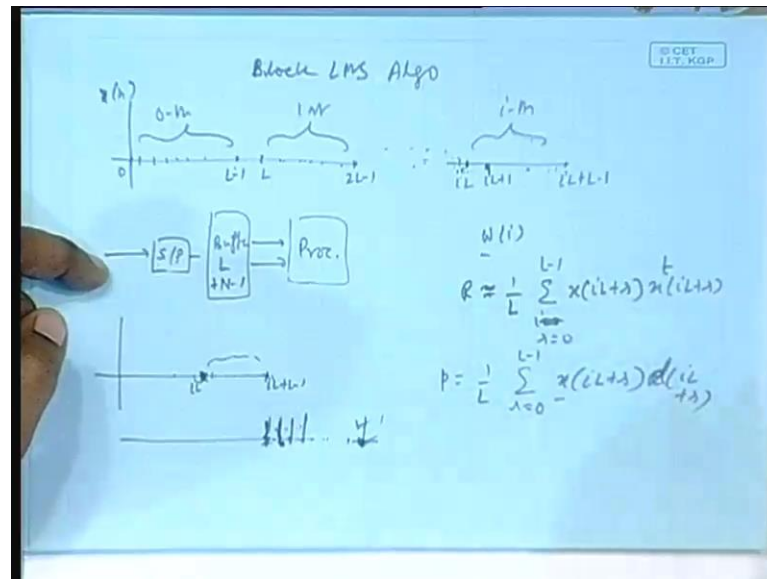 © CET
I.I.T. KGP
Block LMS Algo
x(n)
0-th 1st i-th
0 L-1 L 2L-1 iL iL+1 iL+L-1
S/P
Buffer
L
+N-1
Proc.
w(i)
R ≈ 1/L Σ x(iL+r) x^t(iL+r)
L-1
r=0
iL iL+L-1
p = 1/L Σ x(iL+r) d(iL
+r)
L-1
r=0